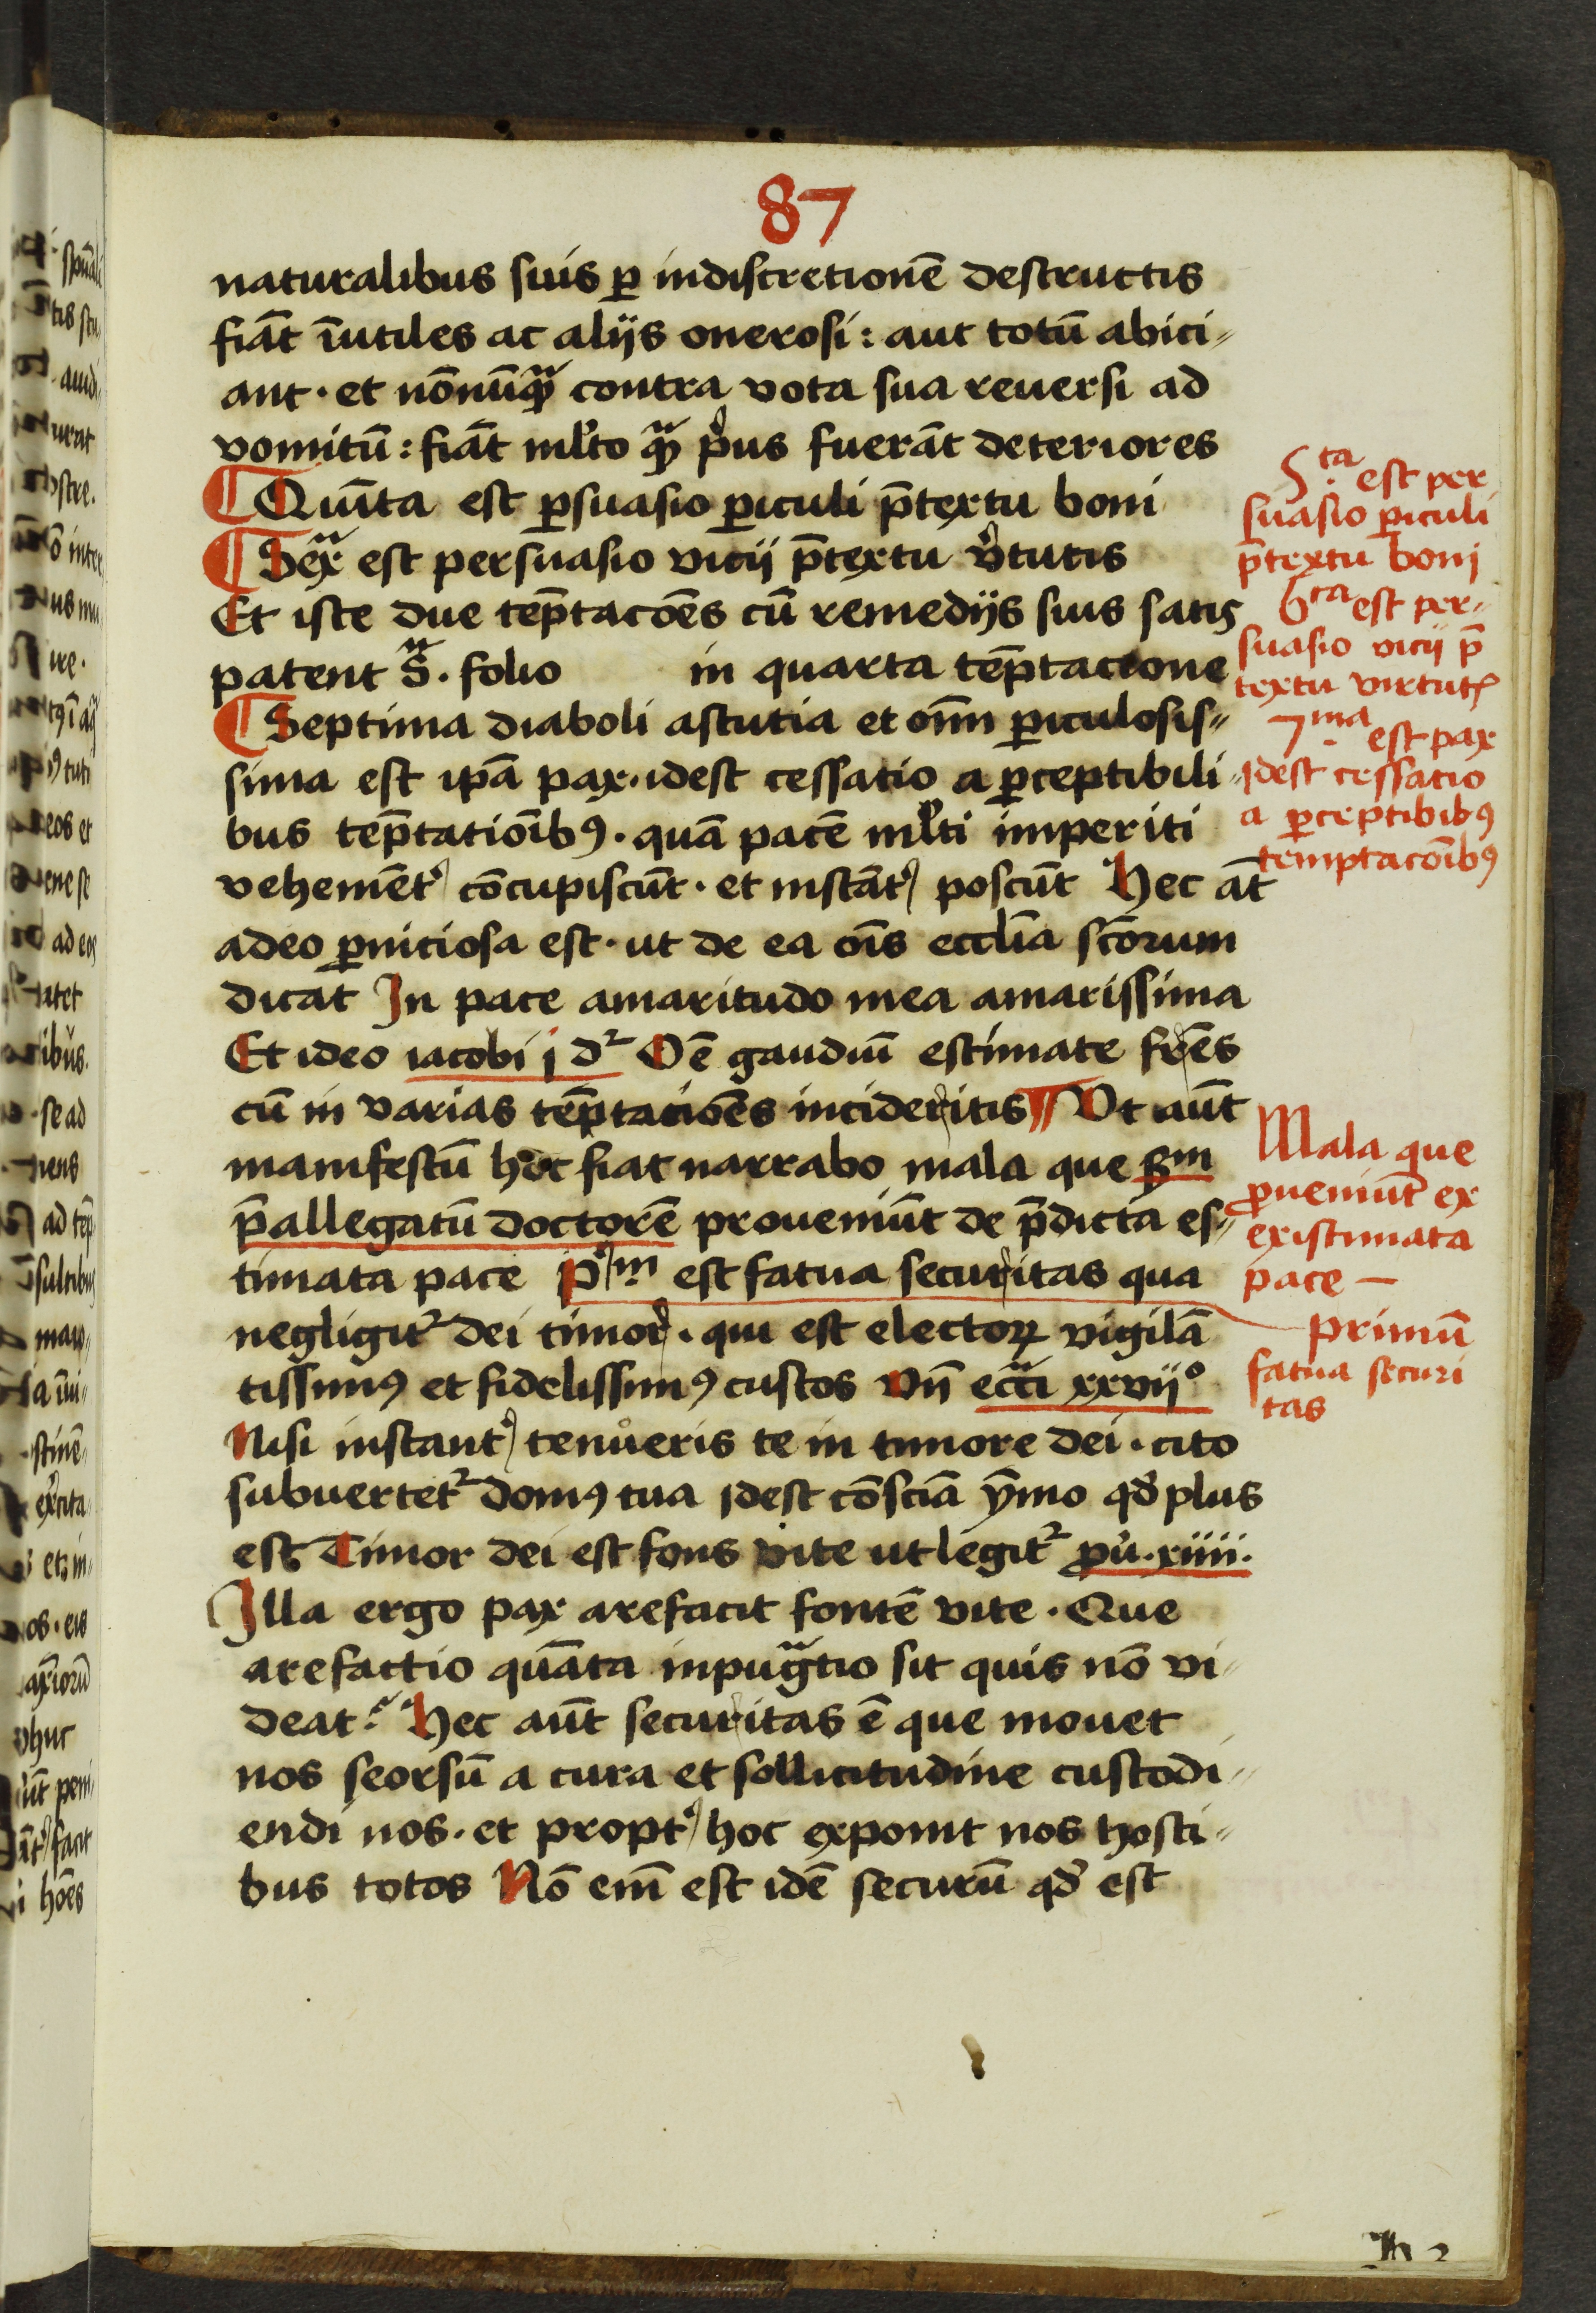 87
naturalibus suis ꝑ indiscretionē destructis
fiāt īutiles ac alijs onerosi: aut totū abici⸗
ant · et nōnūqᷓ contra vota sua reuersi ad
vomitū : fiāt ml̓to qᷓ pͥus fuerāt deteriores
¶ Quīta est ꝑsuasio ꝑiculi p̄textu boni
¶ Sexᷓ est persuasio vicij p̄textu v̓tutis
Et iste due tēp̄tacōēs cū remedijs suis satis
patent sᷓ. folio in quarta tēp̄tacione
¶ Septima diaboli astutia et oīm ꝑiculosis⸗
sima est ip̄a pax. idest cessatio a ꝑceptibili⸗
bus tēp̄tatiōibꝰ. quā pacē ml̓ti imperiti
vehemēt᷒ cōcupiscūt · et instāt᷒ poscūt Hec āt
adeo ꝑniciosa est · ut de ea oīs eccl̄ia scōrum
dicat In pace amaritudo mea amarissima
Et ideo iacobi j dᷣ Oē̄ gaudiū estimate fr̄ēs
cū in varias tēp̄tatiōēs incideritis ¶ Vt aūt
manifestū hoc fiat narrabo mala que ẜm
p̄allegatū doctorē proueniūt de p̄dicta es⸗
timata pace Pͥm est fatua securitas qua
negligitᷣ dei timor . qui est electoꝝ vigilā
tissimꝰ et fidelissimꝰ custos Vn̄ eccᷓi xxvij°
Nisi instant᷒ tenůeris te in timore dei · cito
subuertetᷣ domꝰ tua idest cōsciā ȳmo qd̓ plus
est Timor dei est fons vite ut legitᷣ ꝓu̓. xiiii.
Illa ergo pax arefacit fontē vite . Que
arefactio quāta inpugᷓtio sit quis nō vi⸗
deat? Hec aūt securitas ē que mouet
nos seorsū a cura et sollicitudine custodi⸗
endi nos . et propt᷒ hoc exponit nos hosti⸗
bus totos Nō em̄ est idē securū qd̓ est
5.ta est per
suasio ꝑiculi
p̄textu boni
6ta est per⸗
suasio vicij p̄
textu virtutꝭ
7.ma est pax
idest cessatio
a ꝑceptibibꝰ
temptacōibꝰ
Mala que
ꝓueniūt ex
existimata
pace —
primū
fatua securi
tas